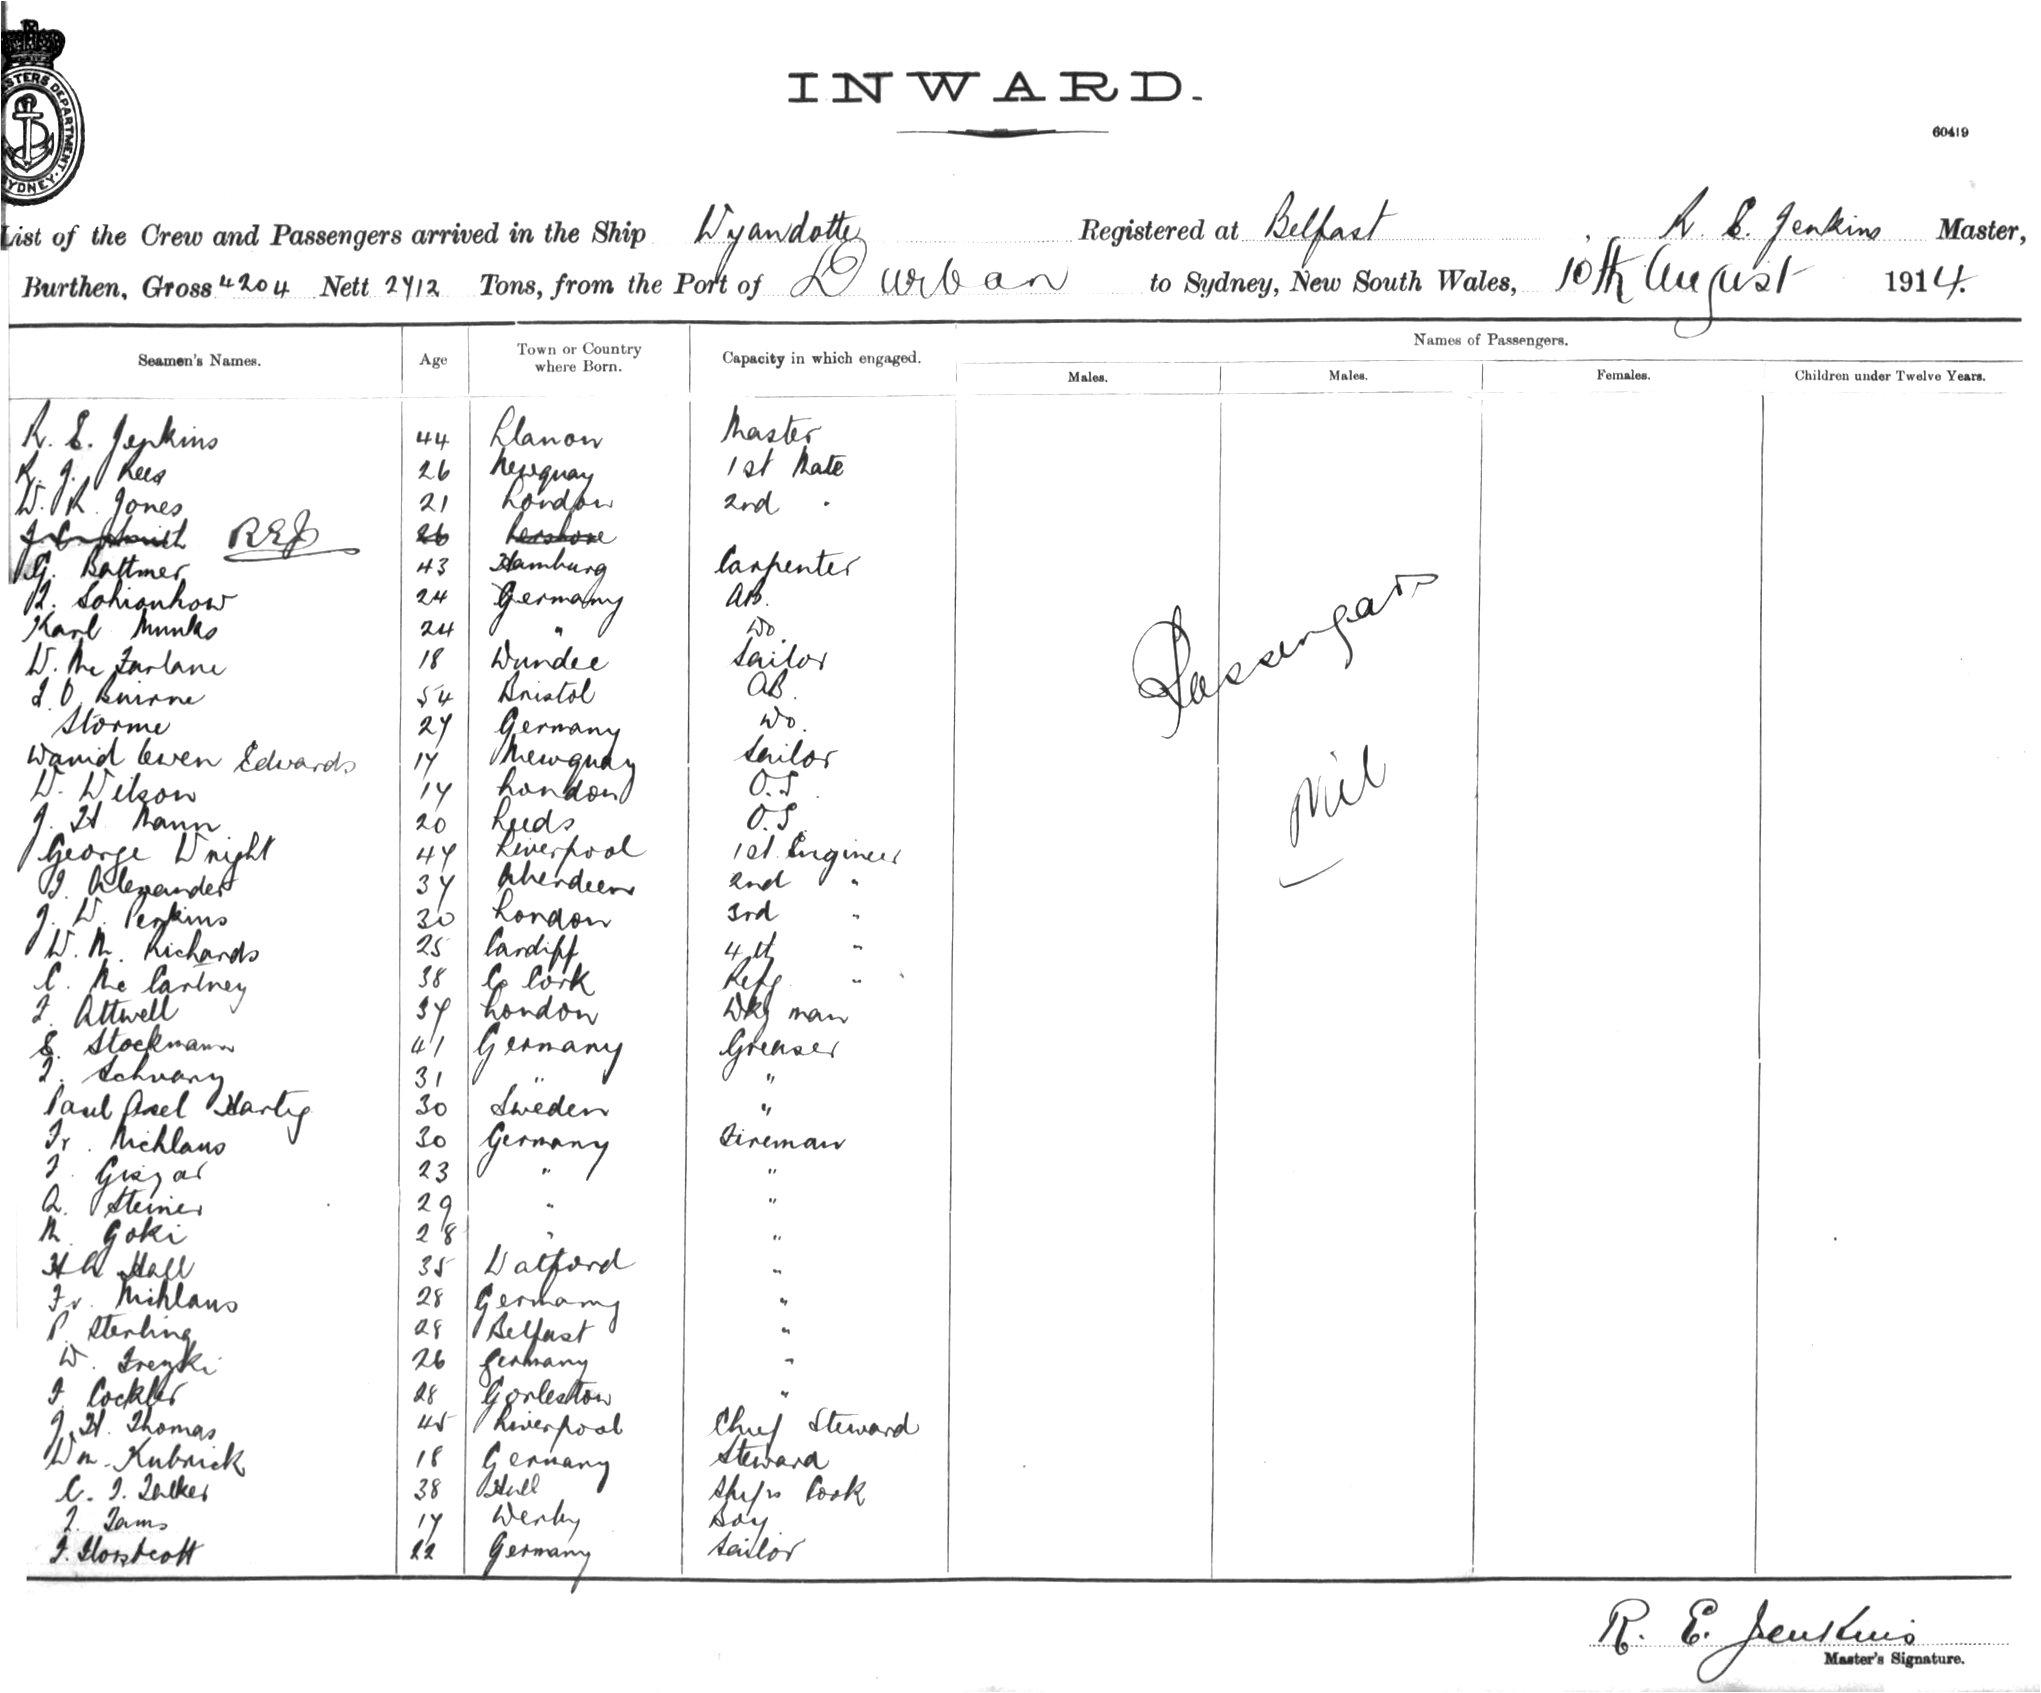 MASTERS DEPARTMENT. SYDNEY.
INWARD.
60419
List of the Crew and Passengers arrived in the Ship Wyandotte Registered at Belfast, R. E. Jenkins Master,
Burthen, Gross 4204 Nett 2712 Tons, from the Port of Durban to Sydney, New South Wales, 10th August 1914.
Seamen's Names. Age Town or Country where Born. Capacity in which engaged. Names of Passengers.
Males. Males. Females. Children under Twelve Years.
R. E. Jenkins 44 Llanon Master
R. J. Rees 26 Newquay 1st Mate
W. R. Jones 21 London 2nd "
Smith REJ 26
G. Battmer 43 Hamburg Carpenter
Schionhow 24 Germany AB.
Karl Munks 24 " Do.
D. Mc Farlane 18 Dundee Sailor
J. O. Buirne 54 Bristol AB.
Storme 27 Germany Do.
David Owen Edwards 17 Newquay Sailor
W. Wilson 17 London O.S.
J. H. Mann 20 Leeds O.S.
George Wright 47 Liverpool 1st Engineer
J. Alexander 37 Aberdeen 2nd "
J. W. Perkins 30 London 3rd "
W. M. Richards 25 Cardiff 4th "
C. Mc Cartney 38 Co Cork Refg "
F. Attwell 37 London Dky man
E. Stockmann 41 Germany Greaser
31 " "
Paul Axel Hartig 30 Sweden "
Fr. Nichlaus 30 Germany Fireman
23 " "
A. Steiner 29 " "
M. Goki 28 " "
H A Hall 35 Watford "
Fr. Nichlaus 28 Germany "
P. Sterling 28 Belfast "
W. 26 Germany "
F. Cockler 28 Gorleston "
J. H. Thomas 45 Liverpool Chief Steward
Wm. Kubrick 18 Germany Steward
C. 38 Hull Ships Cook
17 Derby Boy
F. 22 Germany Sailor
Passengers
Nil
R. E. Jenkins
Master's Signature.